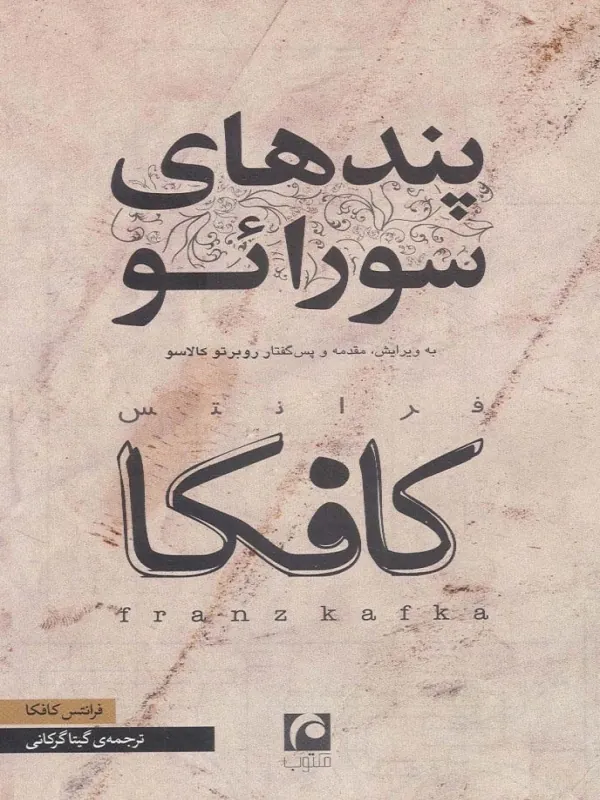 پندهای
سورائو
به ویرایش، مقدمه و پس‌گفتار روبرتو کالاسو
فرانتس
کافکا
franz kafka
فرانتس کافکا
ترجمه‌ی گیتا گرکانی
مکتوب